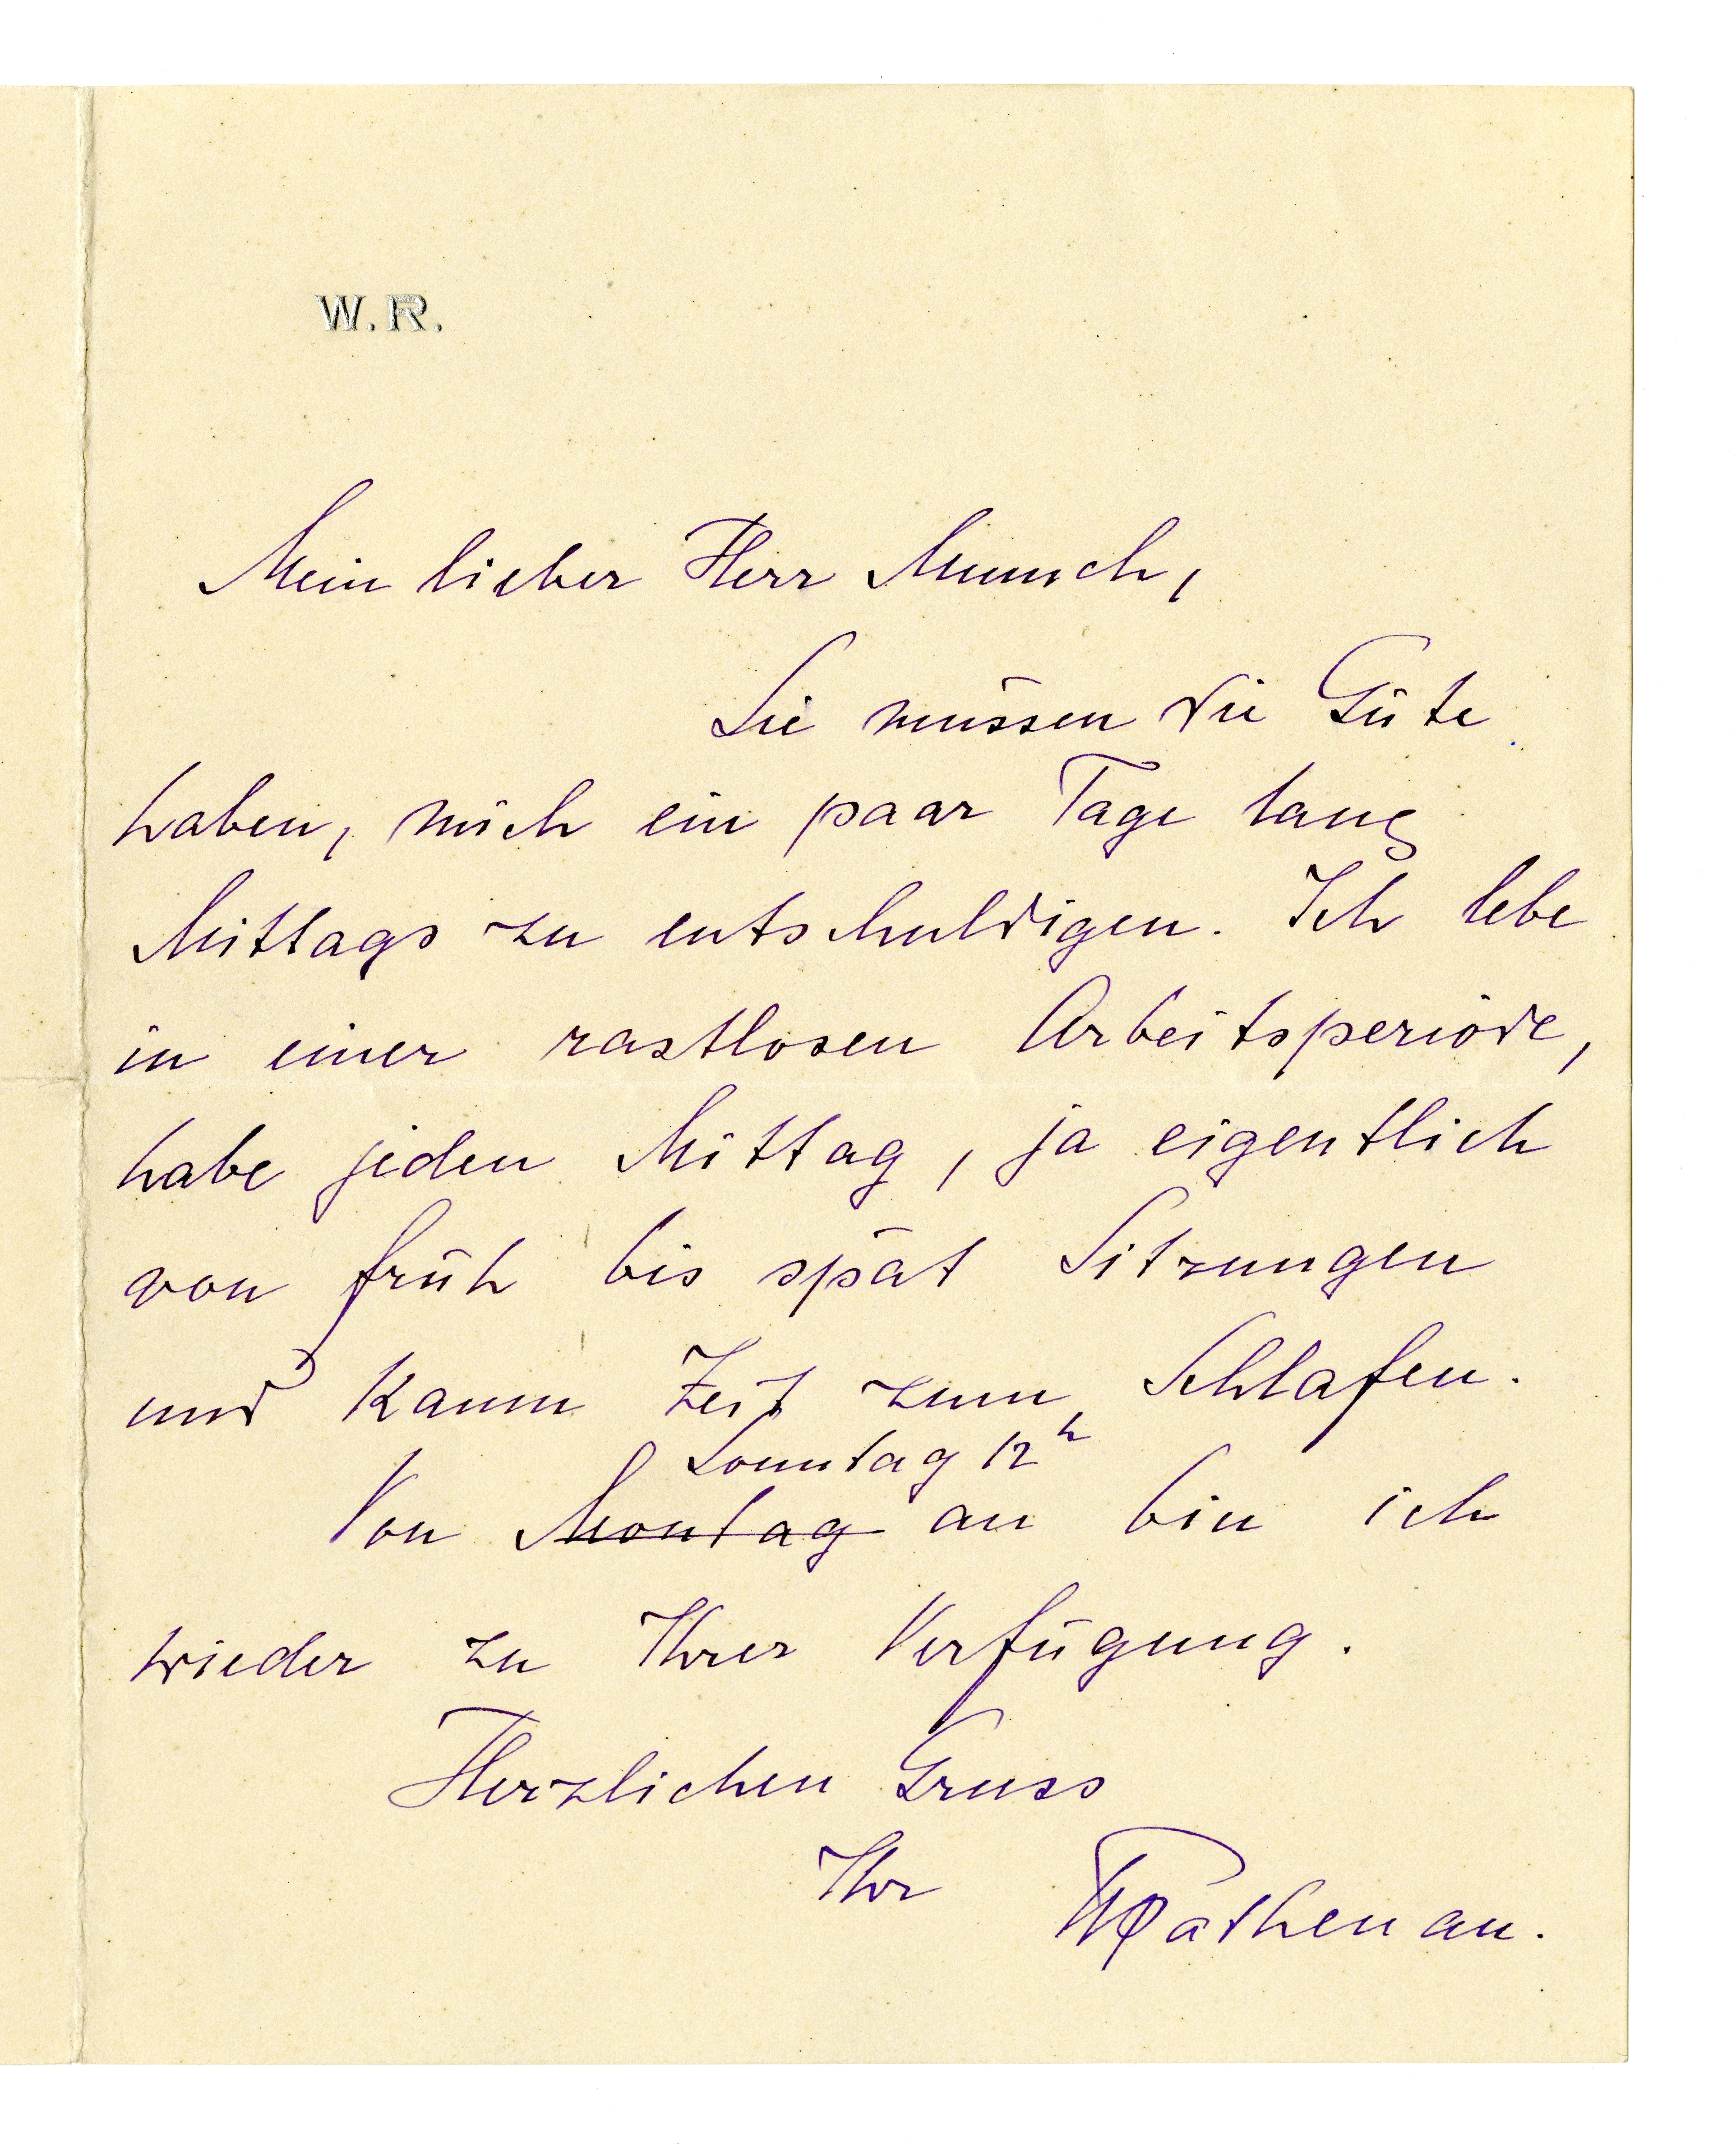 W. R.
Mein lieber Herr Munch,
Sie müssen die Güte
haben, mich ein paar Tage lang
Mittags zu entschuldigen. Ich lebe
in einer rastlosen Arbeitsperiode,
habe jeden Mittag, ja eigentlich
von früh bis spät Sitzungen
und kaum Zeit zum Schlafen.
Sonntag 12h
Von Montag an bin ich
wieder zu Ihrer Verfügung.
Herzlichen Gruss
Ihr WRathenau.